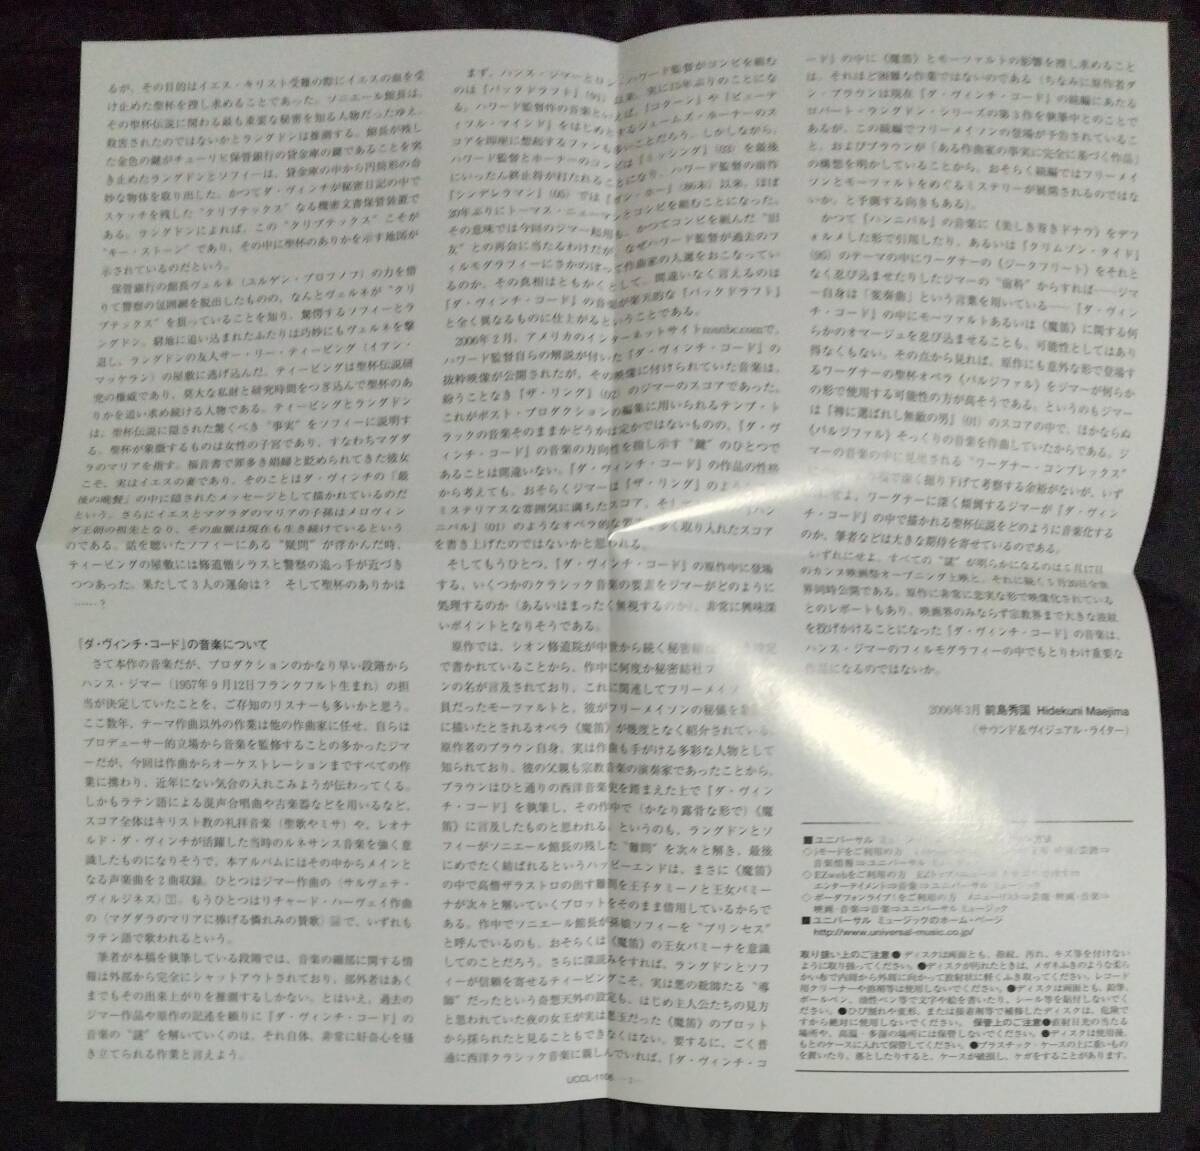 るが、その目的はイエス・キリスト受難の際にイエスの血を受
け止めた聖杯を捜し求めることであった。ソニエール館長は、
その聖杯伝説に関わる最も重要な秘密を知る人物だったゆえ、
殺害されたのではないかとラングドンは推測する。館長が残し
た金色の鍵がチューリヒ保管銀行の貸金庫の鍵であることを突
き止めたラングドンとソフィーは、貸金庫の中から円筒形の奇
妙な物体を取り出した。かつてダ・ヴィンチが秘密日記の中で
スケッチを残した“クリプテックス”なる機密文書保管装置で
ある。ラングドンによれば、この“クリプテックス”こそが
“キー・ストーン”であり、その中に聖杯のありかを示す地図が
示されているのだという。
保管銀行の館長ヴェルネ（ユルゲン・プロフノフ）の力を借
りて警察の包囲網を脱出したものの、なんとヴェルネが“クリ
プテックス”を狙っていることを知り、驚愕するソフィーとラ
ングドン。窮地に追い込まれたふたりは巧妙にもヴェルネを撃
退し、ラングドンの友人サー・リー・ティービング（イアン・
マッケラン）の屋敷に逃げ込んだ。ティービングは聖杯伝説研
究の権威であり、莫大な私財と研究時間をつぎ込んで聖杯のあ
りかを追い求め続ける人物である。ティービングとラングドン
は、聖杯伝説に隠された驚くべき“事実”をソフィーに説明す
る。聖杯が象徴するものは女性の子宮であり、すなわちマグダ
ラのマリアを指す。福音書で罪多き娼婦と貶められてきた彼女
こそ、実はイエスの妻であり、そのことはダ・ヴィンチの『最
後の晩餐』の中に隠されたメッセージとして描かれているのだ
という。さらにイエスとマグダラのマリアの子孫はメロヴィン
グ王朝の祖先となり、その血脈は現在も生き続けているという
のである。話を聴いたソフィーにある“疑問”が浮かんだ時、
ティービングの屋敷には修道僧シラスと警察の追っ手が近づき
つつあった。果たして3人の運命は？　そして聖杯のありかは
……？
『ダ・ヴィンチ・コード』の音楽について
さて本作の音楽だが、プロダクションのかなり早い段階から
ハンス・ジマー（1957年9月12日フランクフルト生まれ）の担
当が決定していたことを、ご存知のリスナーも多いかと思う。
ここ数年、テーマ作曲以外の作業は他の作曲家に任せ、自らは
プロデューサー的立場から音楽を監修することの多かったジマ
ーだが、今回は作曲からオーケストレーションまですべての作
業に携わり、近年にない気合の入れこみようが伝わってくる。
しかもラテン語による混声合唱曲や古楽器などを用いるなど、
スコア全体はキリスト教の礼拝音楽（聖歌やミサ）や、レオナ
ルド・ダ・ヴィンチが活躍した当時のルネサンス音楽を強く意
識したものになりそうで、本アルバムにはその中からメインと
なる声楽曲を2曲収録。ひとつはジマー作曲の〈サルヴェテ・
ヴィルジネス〉、もうひとつはリチャード・ハーヴェイ作曲
の〈マグダラのマリアに捧げる憐れみの賛歌〉で、いずれも
ラテン語で歌われるという。
筆者が本稿を執筆している段階では、音楽の細部に関する情
報は外部から完全にシャットアウトされており、部外者はあく
までもその出来上がりを推測するしかない。とはいえ、過去の
ジマー作品や原作の記述を頼りに『ダ・ヴィンチ・コード』の
音楽の“謎”を解いていくのは、それ自体、非常に好奇心を騒
き立てられる作業と言えよう。
まず、ハンス・ジマーとロン・ハワード監督がコンビを組む
のは『バックドラフト』(91)以来、実に15年ぶりのことにな
る。ハワード監督作の音楽といえば、『コクーン』や『ビューテ
ィフル・マインド』をはじめとするジェームズ・ホーナーのス
コアを即座に想起するファンも多いことだろう。しかしながら、
ハワード監督とホーナーのコンビは『ミッシング』(03)を最後
にいったん終止符が打たれることになり、ハワード監督の前作
『シンデレラマン』(05)では『ガン・ホー』(86未)以来、ほぼ
20年ぶりにトーマス・ニューマンとコンビを組むことになった。
その意味では今回のジマー起用も、かつてコンビを組んだ“旧
友”との再会に当たるわけだが、なぜハワード監督が過去のフ
ィルモグラフィーにさかのぼって作曲家の人選をおこなってい
るのか、その真相はともかくとして、間違いなく言えるのは
『ダ・ヴィンチ・コード』の音楽が楽天的な『バックドラフト』
と全く異なるものに仕上がるということである。
2006年2月、アメリカのインターネットサイトmsnbc.comで、
ハワード監督自らの解説が付いた『ダ・ヴィンチ・コード』の
抜粋映像が公開されたが、その映像に付けられていた音楽は、
紛うことなき『ザ・リング』(02)のジマーのスコアであった。
これがポスト・プロダクションの編集に用いられるテンプ・ト
ラックの音楽そのままかどうかは定かではないものの、『ダ・ヴ
ィンチ・コード』の音楽の方向性を指し示す“鍵”のひとつで
あることは間違いない。『ダ・ヴィンチ・コード』の作品の性格
から考えても、おそらくジマーは『ザ・リング』のような
ミステリアスな雰囲気に満ちたスコア、そして『ハン
ニバル』(01)のようなオペラ的な 多く取り入れたスコア
を書き上げたのではないかと思われる。
そしてもうひとつ、『ダ・ヴィンチ・コード』の原作中に登場
する、いくつかのクラシック音楽の要素をジマーがどのように
処理するのか（あるいはまったく無視するのか）、非常に興味深
いポイントとなりそうである。
原作では、シオン修道院が中世から続く秘密結社 設定
で書かれていることから、作中に何度か秘密結社フ
ンの名が言及されており、これに関連してフリーメイソ
員だったモーツァルトと、彼がフリーメイソンの秘儀を
に描いたとされるオペラ《魔笛》が幾度となく紹介されている。
原作者のブラウン自身、実は作曲も手がける多彩な人物として
知られており、彼の父親も宗教音楽の演奏家であったことから、
ブラウンはひと通りの西洋音楽史を踏まえた上で『ダ・ヴィン
チ・コード』を執筆し、その作中で（かなり露骨な形で）《魔
笛》に言及したものと思われる。というのも、ラングドンとソ
フィーがソニエール館長の残した“難問”を次々と解き、最後
にめでたく結ばれるというハッピーエンドは、まさに《魔笛》
の中で高僧ザラストロの出す難問を王子タミーノと王女パミー
ナが次々と解いていくプロットをそのまま借用しているからで
ある。作中でソニエール館長が孫娘ソフィーを“プリンセス”
と呼んでいるのも、おそらくは《魔笛》の王女パミーナを意識
してのことだろう。さらに深読みをすれば、ラングドンとソフ
ィーが信頼を寄せるティービングこそ、実は悪の総帥たる“導
師”だったという奇想天外の設定も、はじめ主人公たちの見方
と思われていた夜の女王が実は悪玉だった《魔笛》のプロット
から採られたと見ることもできなくはない。要するに、ごく普
通に西洋クラシック音楽に親しんでいれば、『ダ・ヴィンチ・コ
ード』の中に《魔笛》とモーツァルトの影響を捜し求めること
は、それほど困難な作業ではないのである（ちなみに原作者ダ
ン・ブラウンは現在『ダ・ヴィンチ・コード』の続編にあたる
ロバート・ラングドン・シリーズの第3作を執筆中とのことで
あるが、この続編でフリーメイソンの登場が予告されているこ
と、およびブラウンが「ある作曲家の事実に完全に基づく作品」
の構想を明かしていることから、おそらく続編ではフリーメイ
ソンとモーツァルトをめぐるミステリーが展開されるのではな
いか、と予測する向きもある）。
かつて『ハンニバル』の音楽に《美しき青きドナウ》をデフ
ォルメした形で引用したり、あるいは『クリムゾン・タイド』
(95)のテーマの中にワーグナーの《ジークフリート》をそれと
なく忍び込ませたりしたジマーの“前科”からすれば――ジマ
ー自身は「変奏曲」という言葉を用いている――、『ダ・ヴィン
チ・コード』の中にモーツァルトあるいは《魔笛》に関する何
らかのオマージュを忍び込ませることも、可能性としてはあり
得なくもない。その点から見れば、原作にも意外な形で登場す
るワーグナーの聖杯オペラ《パルジファル》をジマーが何らか
の形で使用する可能性の方が高そうである。というのもジマー
は『神に選ばれし無敵の男』(01)のスコアの中で、ほかならぬ
《パルジファル》そっくりの音楽を作曲していたからである。ジ
マーの音楽の中に見出される“ワーグナー・コンプレックス”
深く掘り下げて考察する余裕がないが、いず
せよ、ワーグナーに深く傾倒するジマーが『ダ・ヴィン
チ・コード』の中で描かれる聖杯伝説をどのように音楽化する
のか、筆者などは大きな期待を寄せているのである。
いずれにせよ、すべての“謎”が明らかになるのは5月17日
のカンヌ映画祭オープニング上映と、それに続く5月20日全世
界同時公開である。原作に非常に忠実な形で映像化されている
とのレポートもあり、映画界のみならず宗教界まで大きな波紋
を投げかけることになった『ダ・ヴィンチ・コード』の音楽は、
ハンス・ジマーのフィルモグラフィーの中でもとりわけ重要な
作品になるのではないか。
2006年3月 前島秀国 Hidekuni Maejima
（サウンド＆ヴィジュアル・ライター）
■ユニバーサル ミュージック 方法
◇iモードをご利用の方
音楽情報⇒ユニバーサル ミュージック
◇EZwebをご利用の方 EZトップメニュー⇒
エンターテイメント⇒音楽⇒ユニバーサル ミュージック
◇ボーダフォンライブ！をご利用の方 メニューリスト⇒芸能・映画・音楽⇒
映画・音楽⇒音楽⇒ユニバーサル ミュージック
■ユニバーサル ミュージックのホーム・ページ
http://www.universal-music.co.jp/
取り扱い上のご注意●ディスクは両面とも、指紋、汚れ、キズ等を付けない
ように取り扱ってください。●ディスクが汚れたときは、メガネふきのような柔ら
かい布で内周から外周に向かって放射状に軽くふき取ってください。レコード
用クリーナーや溶剤等は使用しないでください。●ディスクは両面とも、鉛筆、
ボールペン、油性ペン等で文字や絵を書いたり、シール等を貼付しないでく
ださい。●ひび割れや変形、または接着剤等で補修したディスクは、危険で
すから絶対に使用しないでください。 保管上のご注意●直射日光の当たる
場所や、高温・多湿の場所には保管しないでください。●ディスクは使用後、
もとのケースに入れて保管してください。●プラスチック・ケースの上に重いもの
を置いたり、落としたりすると、ケースが破損し、ケガをすることがあります。